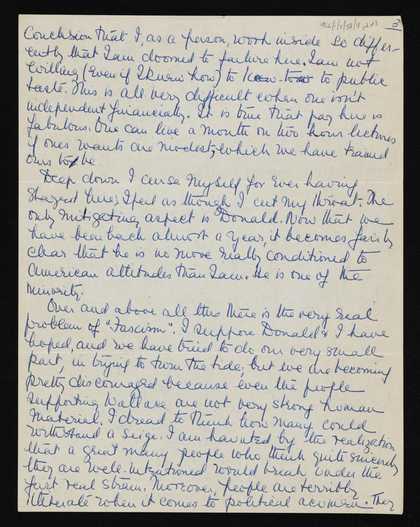 3
Conclusion that I, as a person, work inside so differ-
ently that I am doomed to failure here. I am not
willing (even if I knew how) to kow-tow to public
taste. This is all very difficult when one isn't
independent financially. It is true that pay here is
fabulous. One can live a month on two hours lectures
if ones wants are modest, which we have trained
ours to be.
Deep down I curse myself for ever having
. I feel as though I cut my throat. The
only mitigating aspect is Donald. Now that we
have been back almost a year, it becomes fairly
clear that he is no more really conditioned to
American attitudes than I am. He is one of the
minority.
Over and above all this there is the very real
problem of "Fascism". I suppose Donald & I have
hoped, and we have tried to do our very small
part, in trying to turn the tide, but we are becoming
pretty discouraged because even the people
supporting Wallace are not very strong human
material. I dread to think how many could
withstand a seige. I am haunted by the realization
that a great many people who think quite sincerely
they are well-intentioned would break under the
first real strain. Moreover, people are terribly
illiterate when it comes to political acumen. They